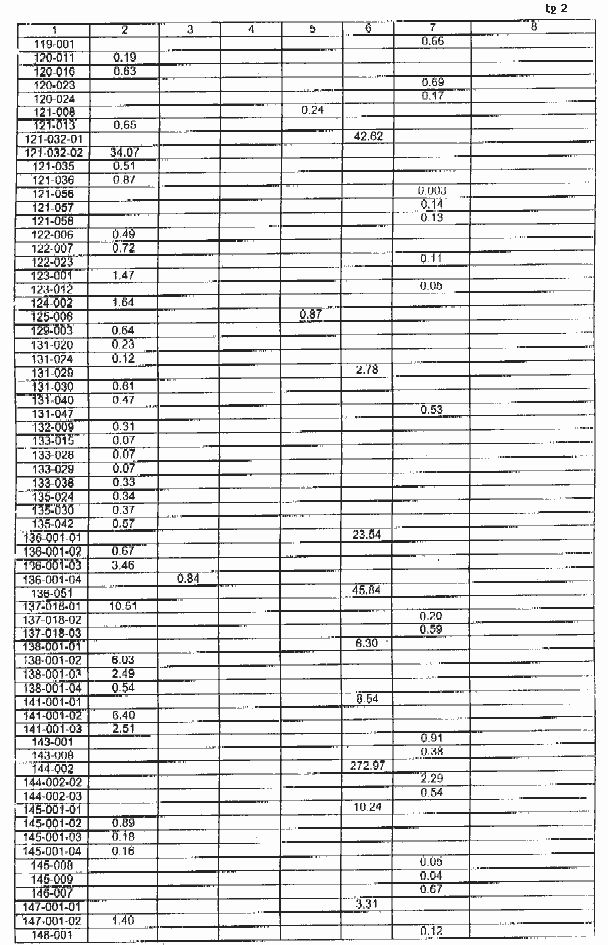 tę 2
1 2 3 4 5 6 7 8
119-001 0.66
120-011 0.19
120-016 0.63
120-023 0.69
120-024 0.17
121-008 0.24
121-013 0.65
121-032-01 42.62
121-032-02 34.07
121-035 0.51
121-036 0.87
121-056 0.003
121-057 0.14
121-058 0.13
122-006 0.49
122-007 0.72
122-023 0.11
123-001 1.47
123-012 0.05
124-002 1.64
125-006 0.87
129-003 0.64
131-020 0.23
131-024 0.12
131-029 2.78
131-030 0.61
131-040 0.47
131-047 0.53
132-009 0.31
133-015 0.07
133-028 0.07
133-029 0.07
133-038 0.33
135-024 0.34
135-030 0.37
135-042 0.57
136-001-01 23.54
136-001-02 0.67
136-001-03 3.46
136-001-04 0.84
136-051 45.84
137-018-01 10.51
137-018-02 0.20
137-018-03 0.59
138-001-01 6.30
138-001-02 6.03
138-001-03 2.49
138-001-04 0.54
141-001-01 8.54
141-001-02 6.40
141-001-03 2.51
143-001 0.91
143-008 0.38
144-002 272.97
144-002-02 2.29
144-002-03 0.54
145-001-01 10.24
145-001-02 0.89
145-001-03 0.18
145-001-04 0.16
145-008 0.05
145-009 0.04
146-007 0.67
147-001-01 3.31
147-001-02 1.40
148-001 0.12